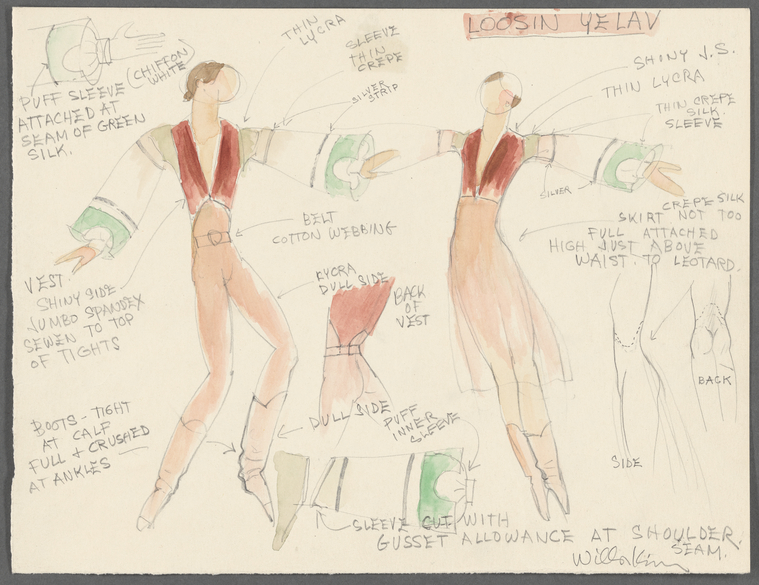 LOOSIN YELAV
THIN
LYCRA
SLEEVE
THIN
CREPE
SILVER
STRIP
(CHIFFON
WHITE)
PUFF SLEEVE
ATTACHED AT
SEAM OF GREEN
SILK.
SHINY J.S.
THIN LYCRA
THIN CREPE
SILK
SLEEVE
SILVER
CREPE SILK
SKIRT NOT TOO
FULL ATTACHED
HIGH JUST ABOVE
WAIST. TO LEOTARD.
BELT
COTTON WEBBING
VEST.
SHINY SIDE
JUMBO SPANDEX
SEWEN TO TOP
OF TIGHTS
DULL SIDE
BACK
OF
VEST
BOOTS - TIGHT
AT CALF
FULL + CRUSHED
AT ANKLES
DULL SIDE
PUFF
INNER
SLEEVE
SIDE
BACK
SLEEVE CUT WITH
GUSSET ALLOWANCE AT SHOULDER
SEAM.
Willa Kim